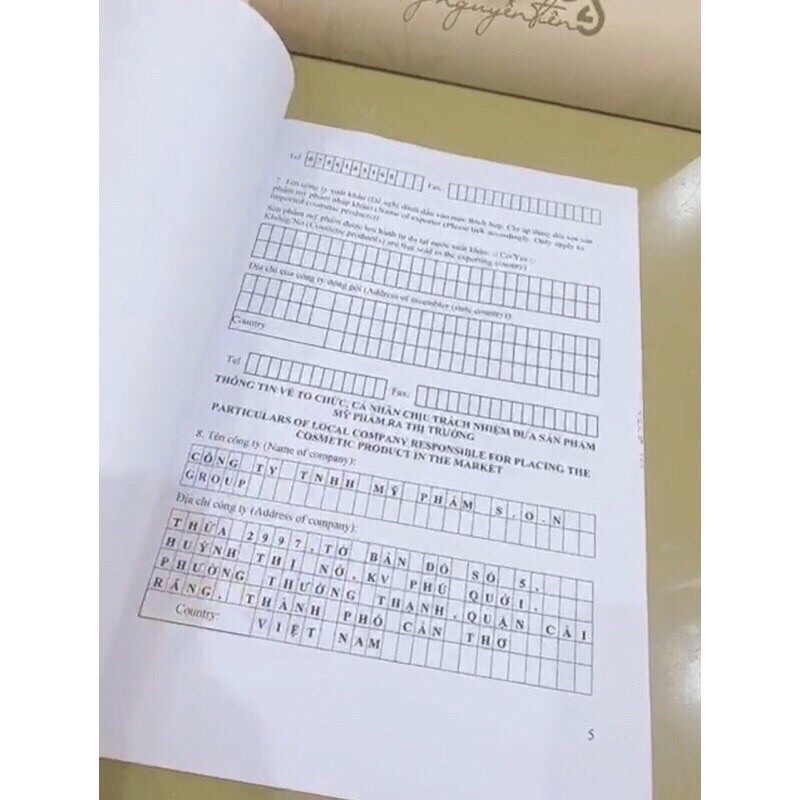 nguyên
Tel
Fax:
7. Tên công ty xuất khẩu (Đề nghị đánh dấu vào mục thích hợp. Chỉ áp dụng đối với sản
phẩm mỹ phẩm nhập khẩu) (Name of exporter (Please tick accordingly. Only apply to
imported cosmetic products))
Sản phẩm mỹ phẩm được lưu hành tự do tại nước xuất khẩu: □ Có/Yes □
Không/No (Cosmetic product(s) are free sold in the exporting country)
Địa chỉ của công ty đóng gói (Address of assembler (state country))
Country
Tel
Fax:
THÔNG TIN VỀ TỔ CHỨC, CÁ NHÂN CHỊU TRÁCH NHIỆM ĐƯA SẢN PHẨM
MỸ PHẨM RA THỊ TRƯỜNG
PARTICULARS OF LOCAL COMPANY RESPONSIBLE FOR PLACING THE
COSMETIC PRODUCT IN THE MARKET
8. Tên công ty (Name of company):
CÔNG TY TNHH MỸ PHẨM S.O.N
GROUP
Địa chỉ công ty (Address of company):
THỬA 2997, TỜ BẢN ĐỒ SỐ 5,
HUỲNH THỊ NỞ, KV PHÚ QUỚI,
PHƯỜNG THƯỜNG THẠNH, QUẬN CÁI
RĂNG, THÀNH PHỐ CẦN THƠ
Country: VIỆT NAM
5